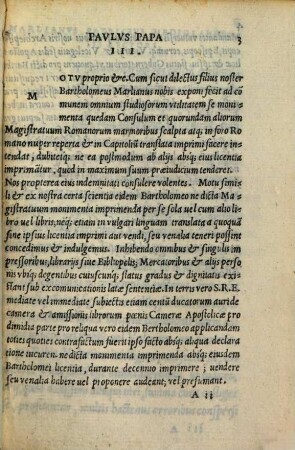 PAVLVS PAPA 3
III.
MOTV proprio &c. Cum sicut dilectus filius noster
Bartholomeus Marlianus nobis exponi fecit ad cō
munem omnium studiosorum vtilitatem se moni
menta quedam Consulum et quorundam aliorum
Magistratuum Romanorum marmoribus sculpta atq; in foro Ro
mano nuper reperta & in Capitoliū translata imprimi facere in
tendat; dubitetq; ne ea postmodum ab alijs absq; eius licentia
imprimātur, quod in maximum suum præiudicium tenderet.
Nos propterea eius indemnitati consulere volentes. Motu simi
li & ex nostra certa scientia eidem Bartholomeo ne dicta Magi-
stratuum monumenta imprimenda per se sola vel cum alio libro
uel libris; neq; etiam in vulgari linguam translata a quoquā
sine ipsius licentia imprimi aut vendi, seu venalia teneri possint
concedimus & indulgemus. Inhibendo omnibus & singulis im
pressoribus; librarijs siue Bibliopolis; Mercatoribus & alijs perso
nis vbiq; degentibus cuiuscunq; status gradus & dignitatis exi-
stant sub excomunicationis latæ sententiæ. In terris vero S.R.E.
mediate vel immediate subiectis etiam centū ducatorum auri de
camera & amissionis librorum pœnis Cameræ Apostolicæ pro
dimidia parte pro reliqua vero eidem Bartholomeo applicandam
toties quoties contrafactum fuerit ipso facto absq; aliqua declara
tione incuren. ne dicta monimenta imprimenda absq; eiusdem
Bartholomei licentia, durante decennio imprimere; uendere
seu venalia habere vel proponere audeant; vel præsumant.
A ii